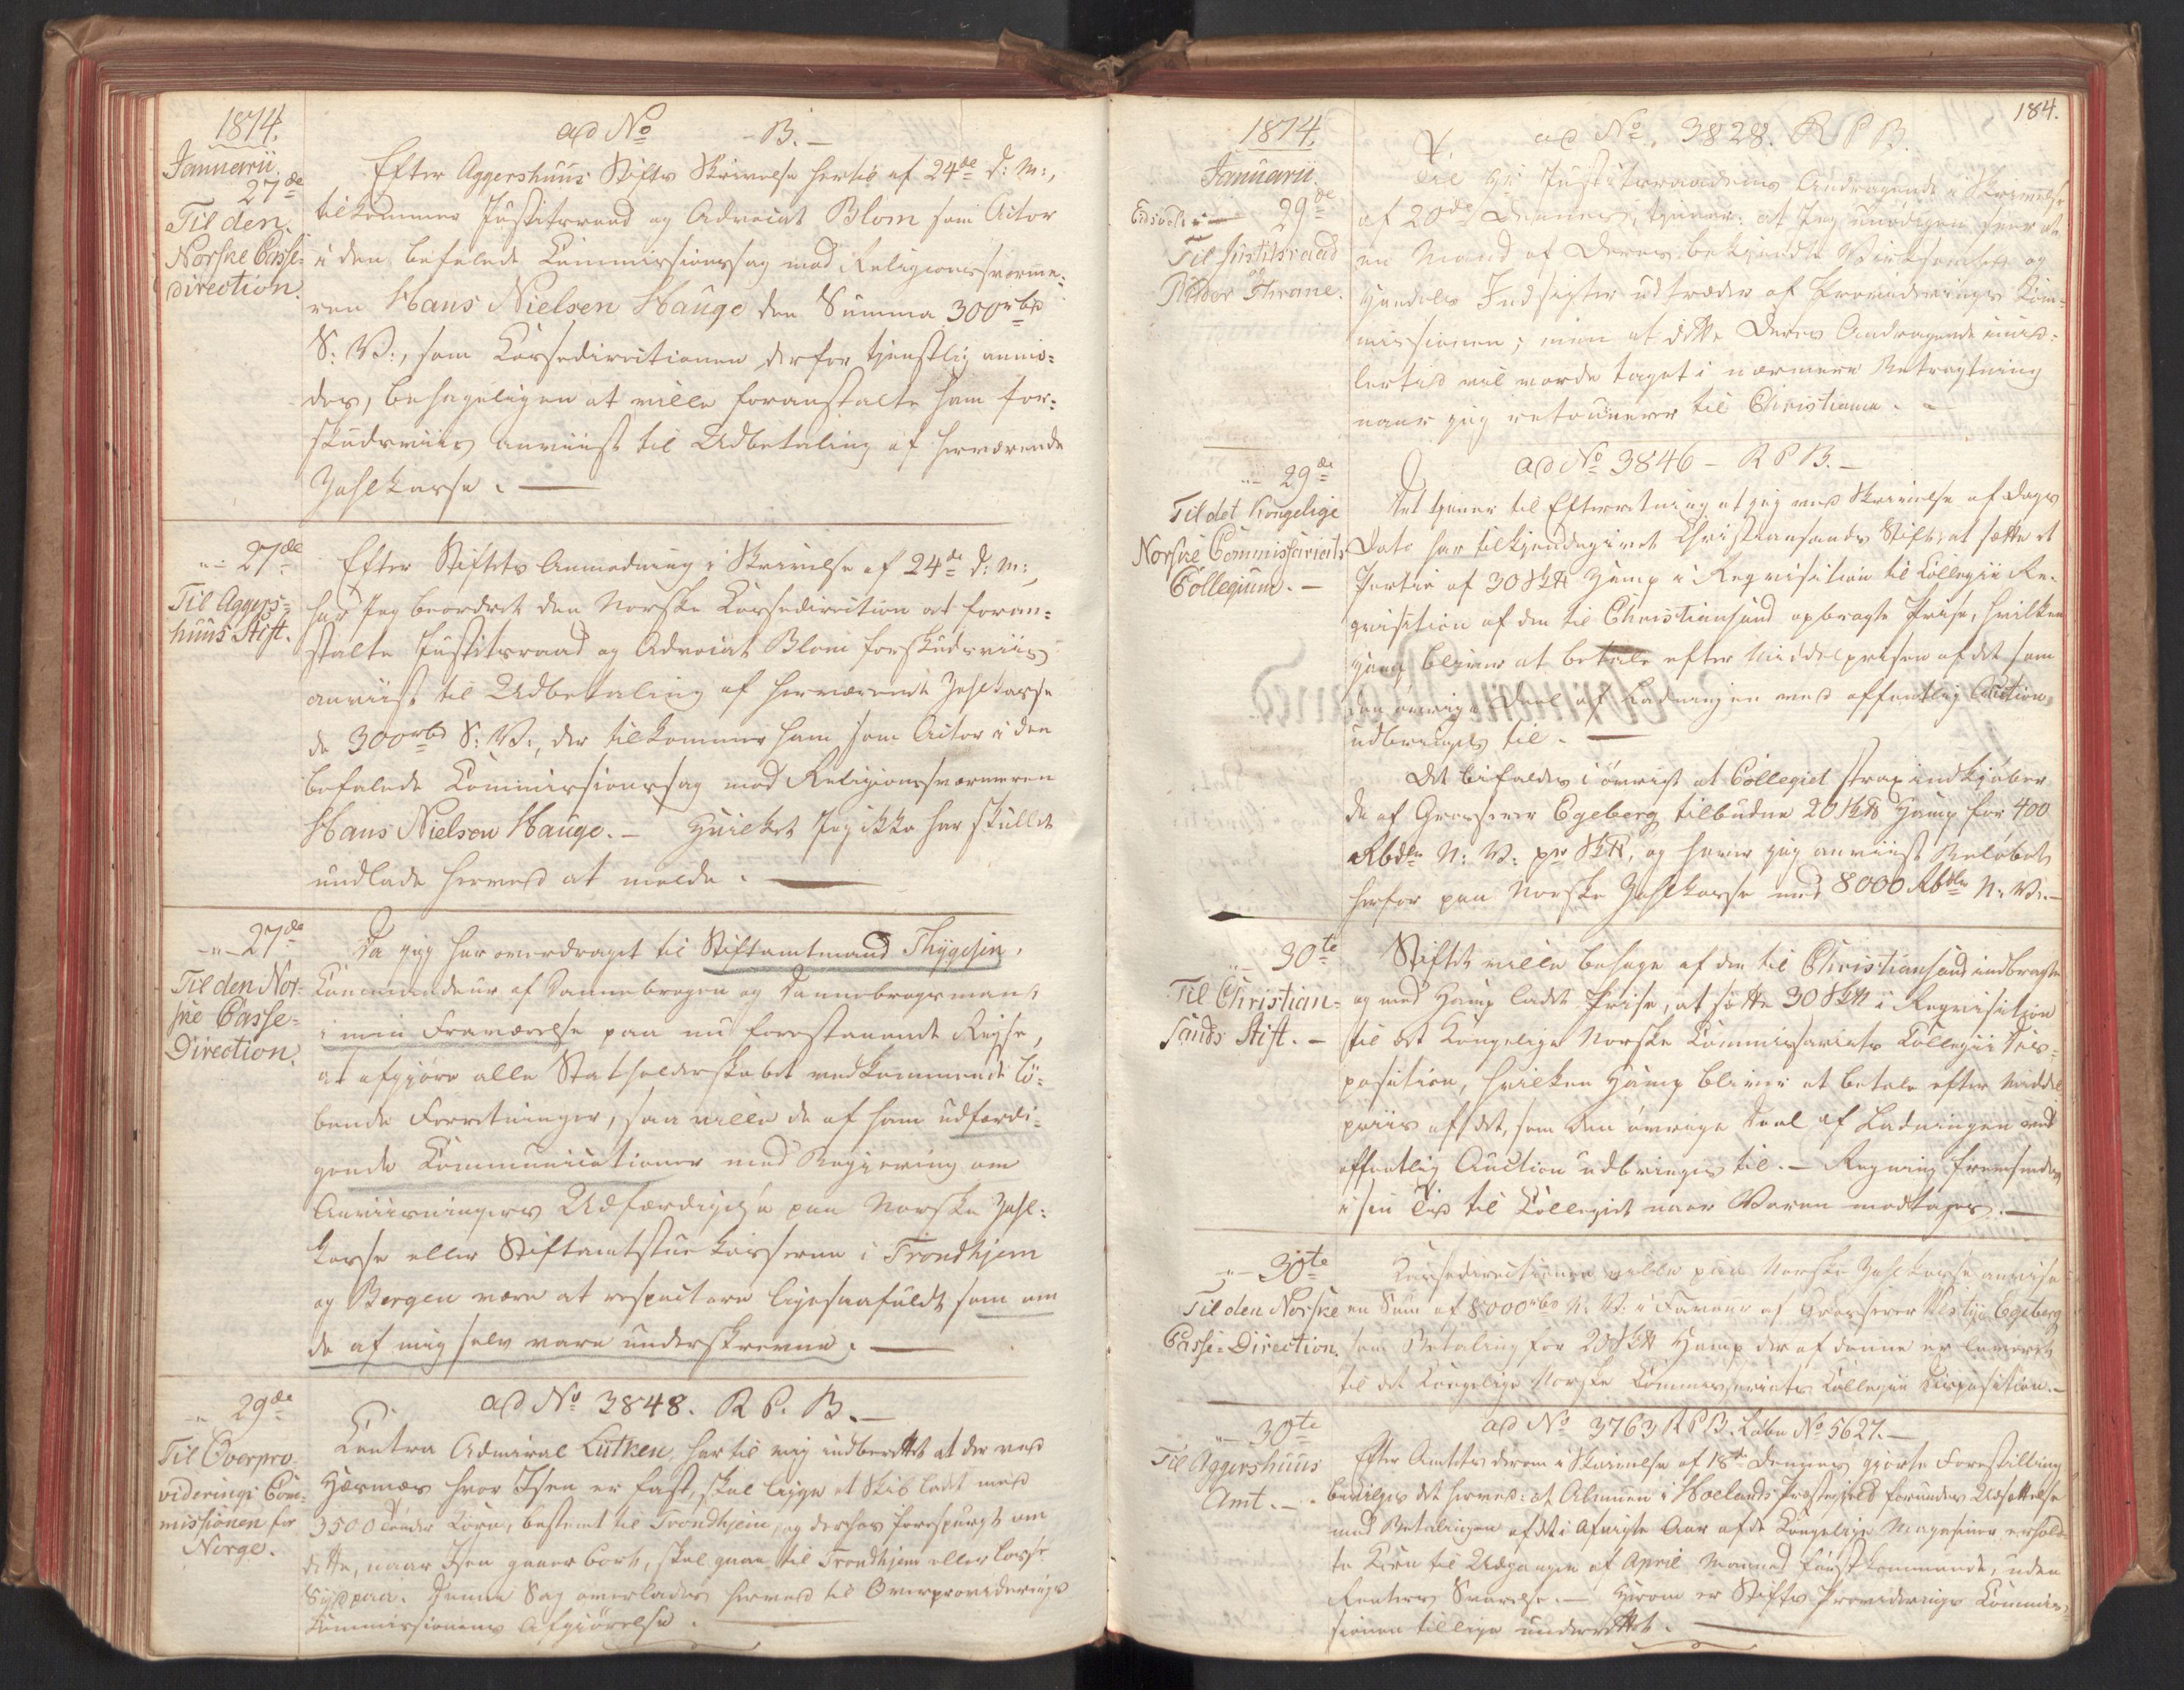 1814.
Januarii.
27de
Til den
Norske Casse-
direction.
ad No - B. -
Efter Aggershuus Stifts Skrivelse hertil af 24de d: M:,
tilkommer Justitsraad og Advocat Blom som Actor
i den befalede Commissionssag mod Religionssværme-
ren Hans Nielsen Hauge den Summa 300 rbd
S: V:, som Cassedirectionen derfor tjenstlig anmo-
des, behageligen at ville foranstalte ham for-
skudsviis anviist til Udbetaling af herværende
Zahlkasse. -
"- 27de
Til Aggers-
huus Stift.
Efter Stiftets Anmodning i Skrivelse af 24de d: M:,
har Jeg beordret den Norske Cassedirection at foran-
stalte Justitsraad og Advocat Blom forskudsviis
anviist til Udbetaling af herværende Zahlkasse
de 300 rbd S: V:, der tilkommer ham som Actor i den
befalede Commissionssag mod Religionssværmeren
Hans Nielsen Hauge. - Hvilket Jeg ikke har skullet
undlade herved at melde. -
-"- 27de
Til den Nor-
ske Casse-
Direction.
Da jeg har overdraget til Stiftamtmand Thygesen,
Commandeur af Dannebrogen og Dannebrogsmand,
i min Fraværelse paa nu forestaaende Reyse,
at afgjøre alle Statholderskabet vedkommende lö-
bende Forretninger, saa ville de af ham udfærdi-
gende Communicationer med Regjering om
Anviisningers Udfærdigelse paa Norske Zahl-
kasse eller Stiftamtstue kasserne i Trondhjem
og Bergen være at respectere ligesaafuldt som om
de af mig selv vare underskrevne. -
-" 29de
Til Overpro-
viderings Com-
missionen for
Norge.
ad No 3848. R P. B. -
Contra Admiral Lütken har til mig indberettet at der ved
hvor Isen er fast, skal ligge et Skib ladt med
3500 Tønder Korn, bestemt til Trondhjem, og derhos forespurgt om
dette, naar Isen gaaer bort, skal gaae til Trondhjem eller losse
Denne Sag overlades herved til Overproviderings
Commissionens Afgiörelse. -
184.
1814.
Januarii.
Eidsvold "- 29de
Til Justitsraad
Peder Thrane.
ad No. 3828. R P B.
Til Hr Justitsraadens Andragende i Skrivelse
af 20de Dennes, tjener: at Jeg unødigen seer at
en Mand af Deres bekjendte Virksomhed og
Handels Indsigter udtræder af Provideringss Com-
missionen; men at dette Deres Andragende imid-
lertid vil vorde taget i nærmere Betragtning
naar jeg retournerer til Christiania. -
"- 29de
Til det Kongelige
Norske Commissariats
Collegium. -
ad No 3846 - R P B. -
Det tjener til Efterretning at jeg ved Skrivelse af Dags
Dato har tilkjendegivet Christiansands Stift, at sætte et
Partie af 30 Sk℔ Hamp i Reqvisition til Collegii Re-
qvisition af den til Christiansand opbragte Prise, hvilken
Hamp bliver at betale efter Middelprisen af det som
den øvrige Deel af Ladningen ved offentlig Auction
udbringes til. -
Det bifaldes i øvrigt at Collegiet strax indkjøber
de af Grosserer Egeberg tilbudne 20 Sk℔ Hamp for 400
Rbdlr N: V: pr Sk℔, og haver jeg anviist Beløbet
herfor paa Norske Zahlkasse med 8000 Rbdlr N: V: -
"- 30te
Til Christian-
sands Stift. -
Stiftet ville behage af den til Christiansand indbragte
og med Hamp ladte Prise, at sætte 30 Sk℔ i Reqvisition
til det Kongelige Norske Commissariats Collegii Dis-
position, hvilken Hamp bliver at betale efter Middel
priis af det, som den øvrige Deel af Ladningen ved
offentlig Auction udbringes til. - Regning fremsendes
i sin Tid til Collegiet naar Varen modtages. -
-"- 30te
Til den Norske
Casse-Direction.
Cassedirectionen ville paa Norske Zahlkasse anvise
en Sum af 8000 rbd N. V. i Faveur af Grosserer Westye Egeberg
som Betaling for 20 Sk℔ Hamp der af denne er leveret
til det Kongelige Norske Commissariats Collegii Disposition. -
"- 30te
Til Aggershuus
Amt. -
ad No 3763 R P B. Løbe No 5627. -
Efter Amtets derom i Skrivelse af 18de Dennes gjorte Forestilling
bevilges det herved: at Almuen i Hoelands Præstegield forundes Udsættelse
med Betalingen af det i afvigte Aar af de Kongelige Magasiner erhold-
te Korn til Udgangen af April Maaned førstkommende, uden
Renters Svarelse. - Herom er Stifts Providerings Commis-
sionen tillige underrettet. -